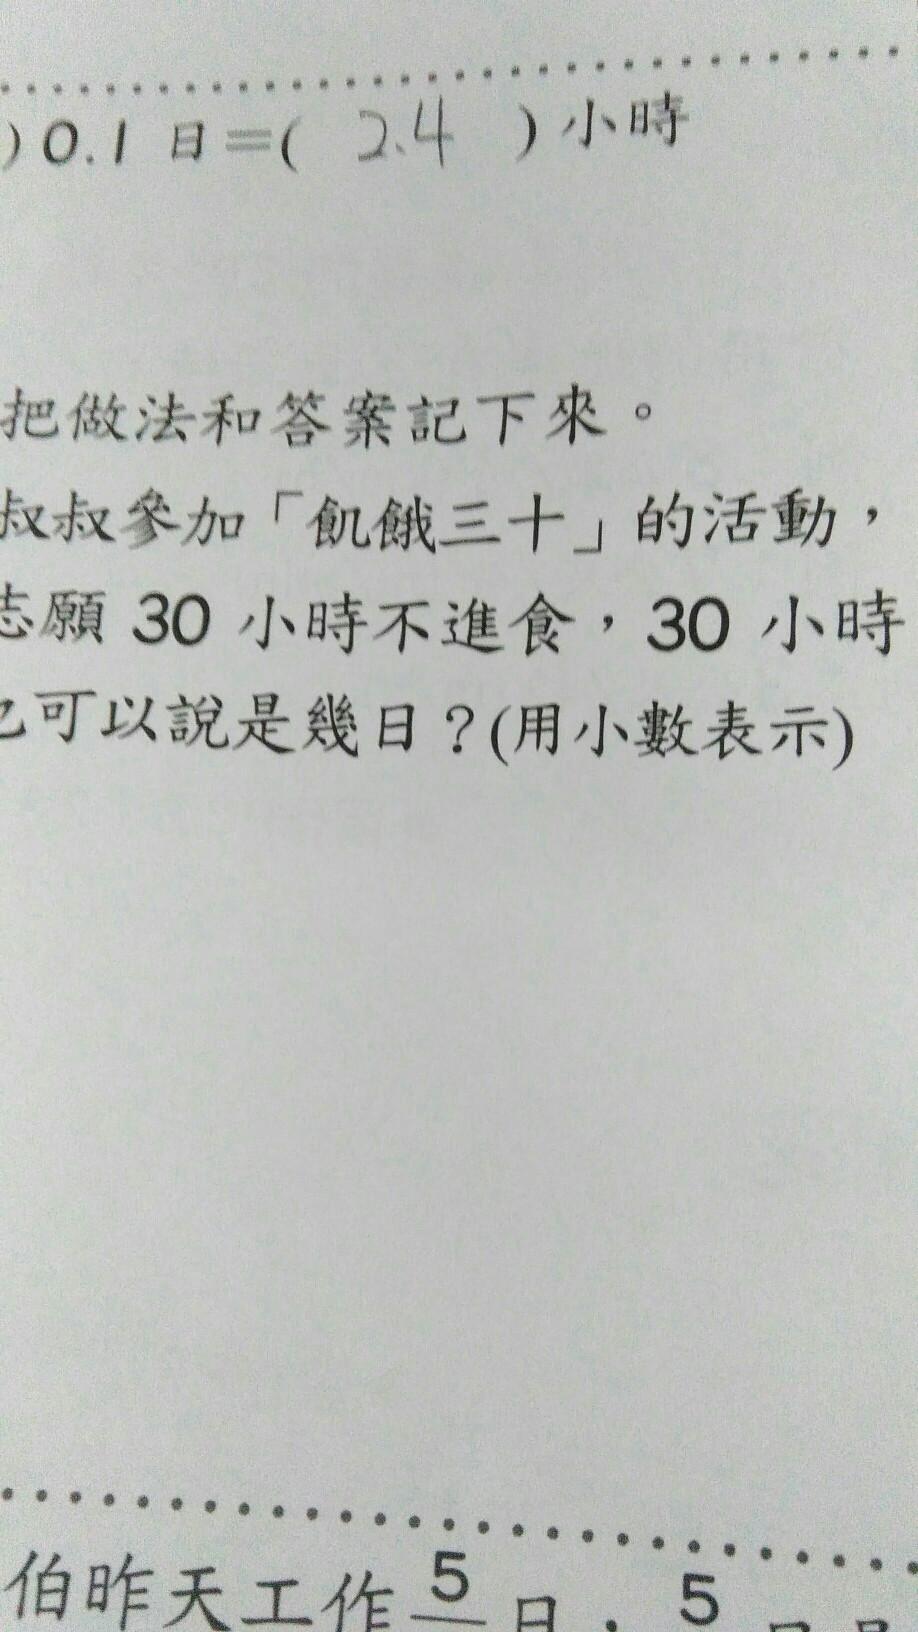 ) 0.1 日=( 2.4 ) 小時
把做法和答案記下來。
叔叔參加「飢餓三十」的活動，
志願 30 小時不進食，30 小時
也可以說是幾日？(用小數表示)
伯昨天工作 5 日，5